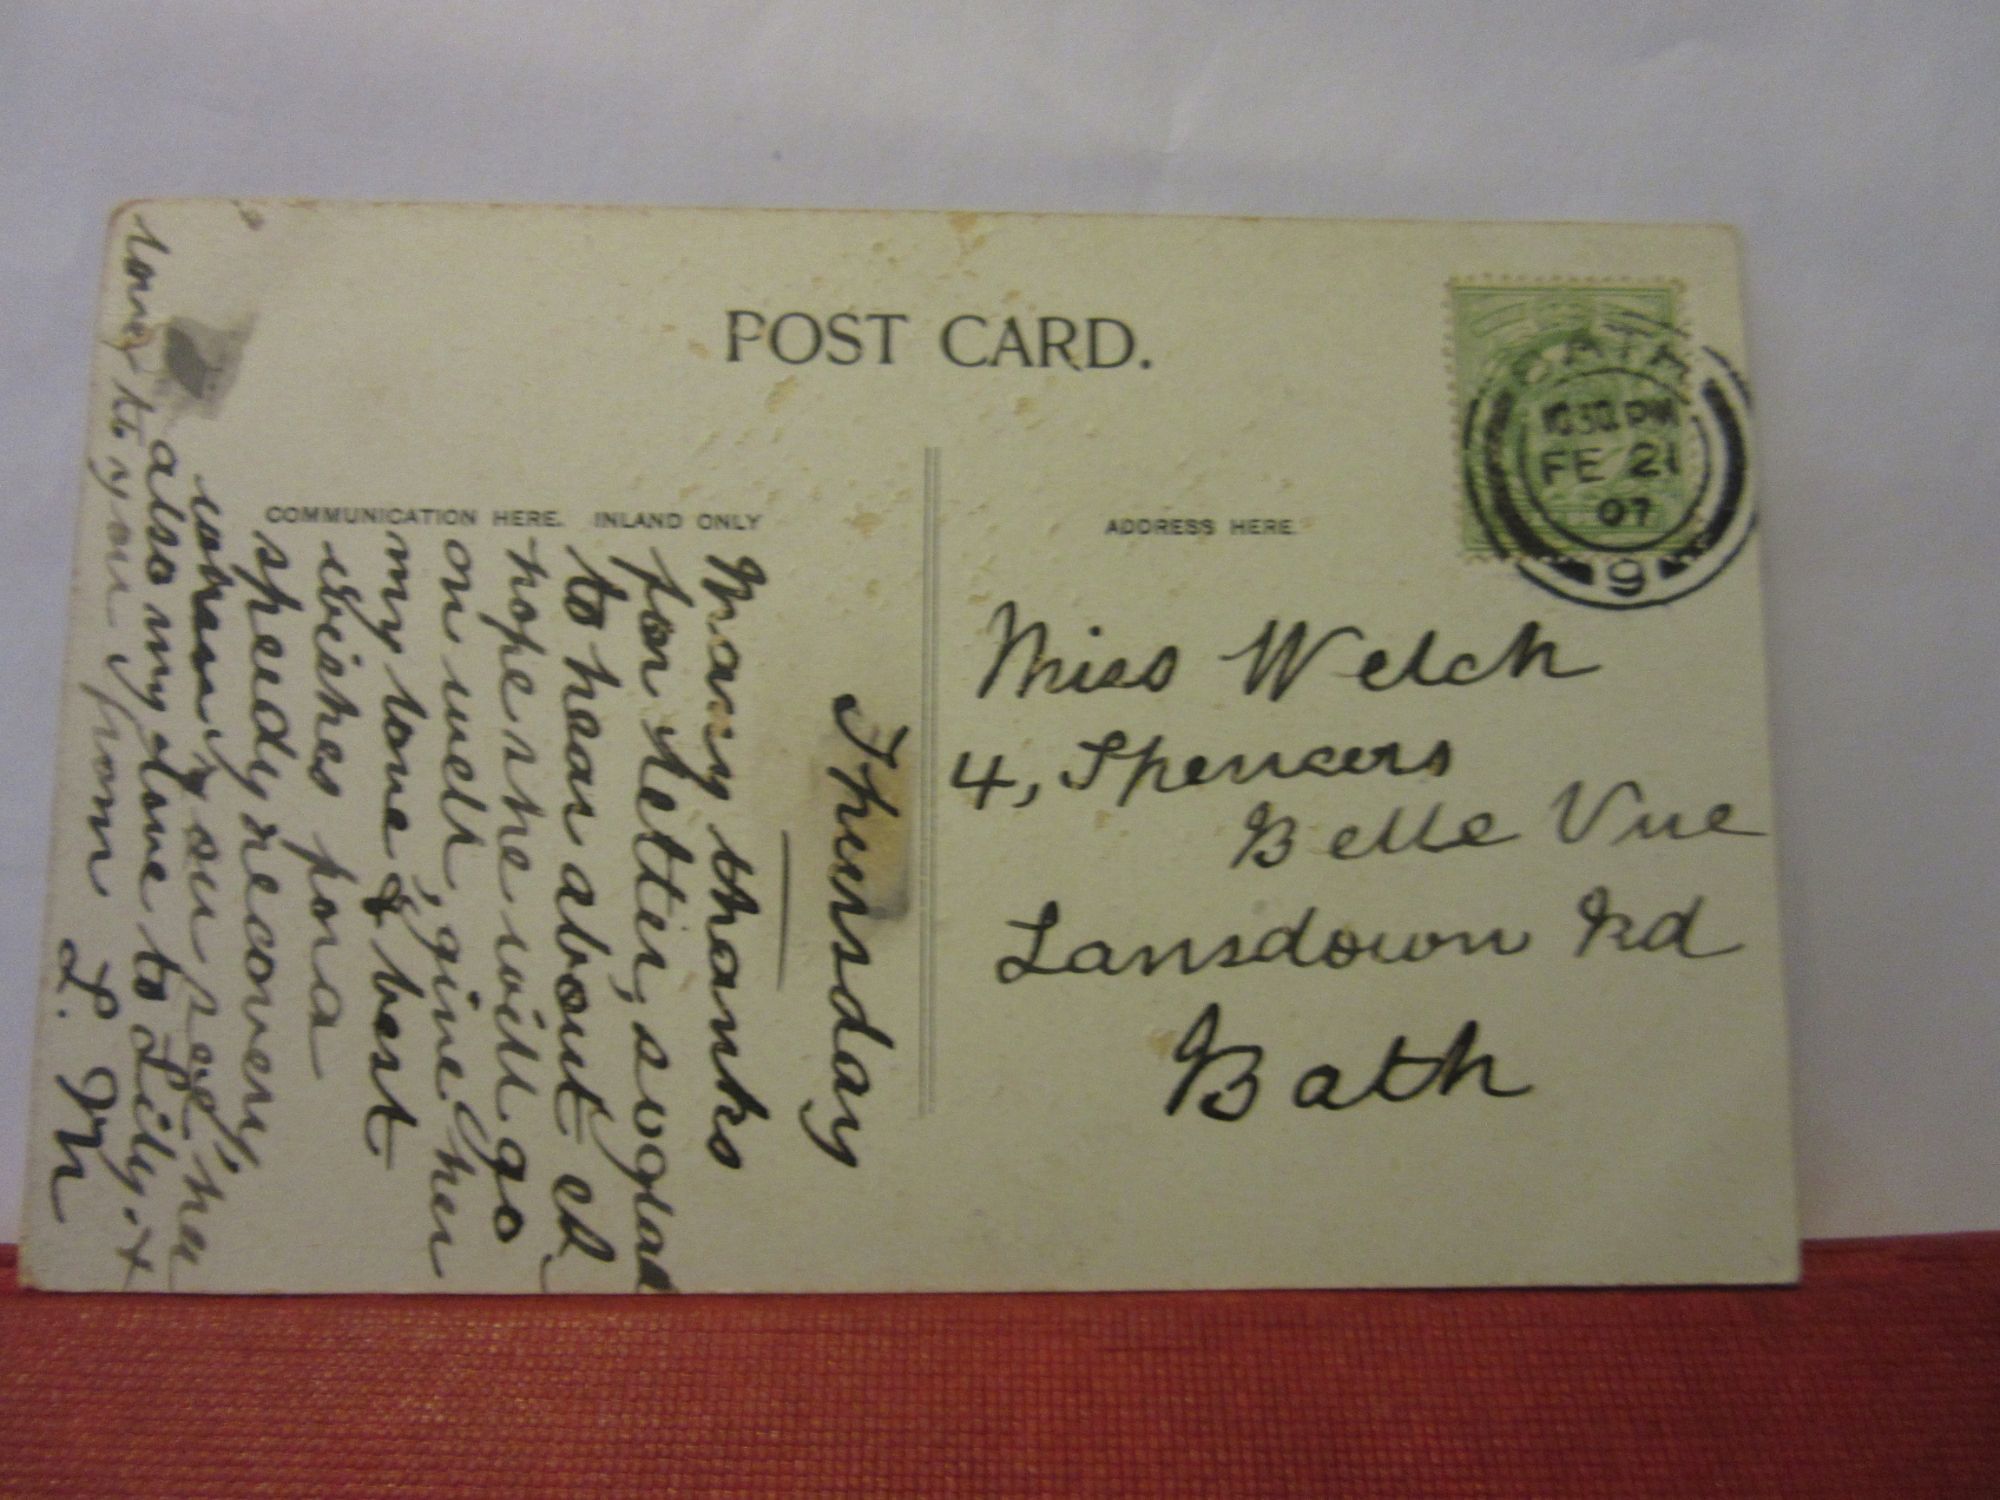 POST CARD.
COMMUNICATION HERE. INLAND ONLY
ADDRESS HERE.
BATH
10.30 PM
FE 21
07
9
Miss Welch
4, Spencers
Belle Vue
Lansdown Rd
Bath
Thursday
Many thanks
for letter, so glad
to hear about
hope she will go
on well, give her
my love & best
wishes for a
speedy recovery
when you see her
also my love to Lily &
love to you from L. M